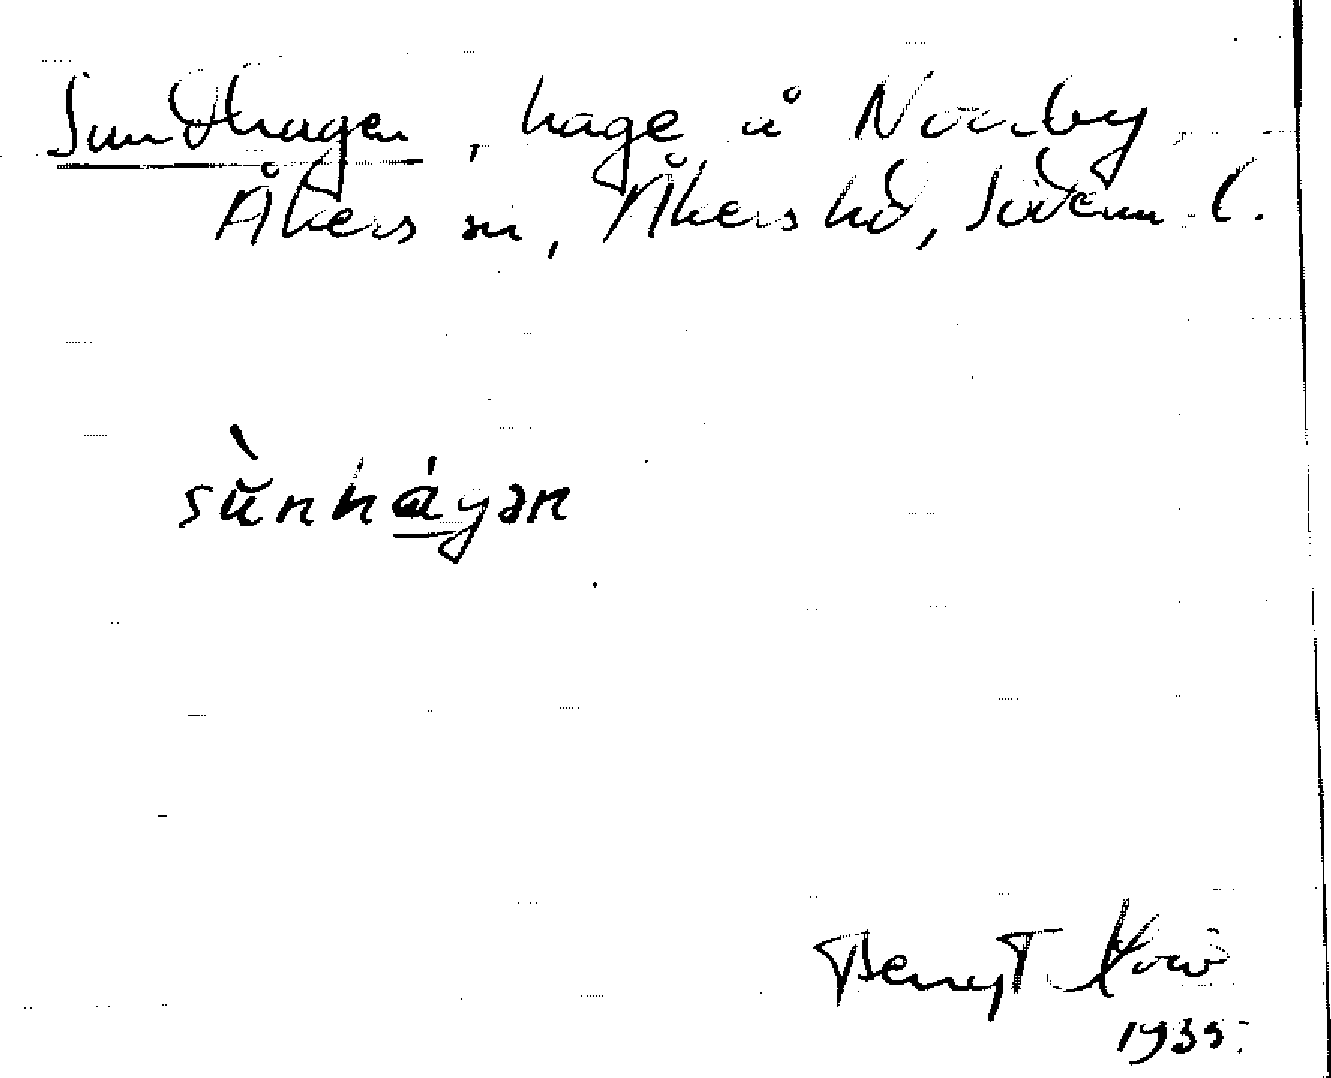 Sundhagen, hage å Norrby
Åkers sn, Åkers hd, Söderm. l.
sùnháɣən
Bengt
1935.